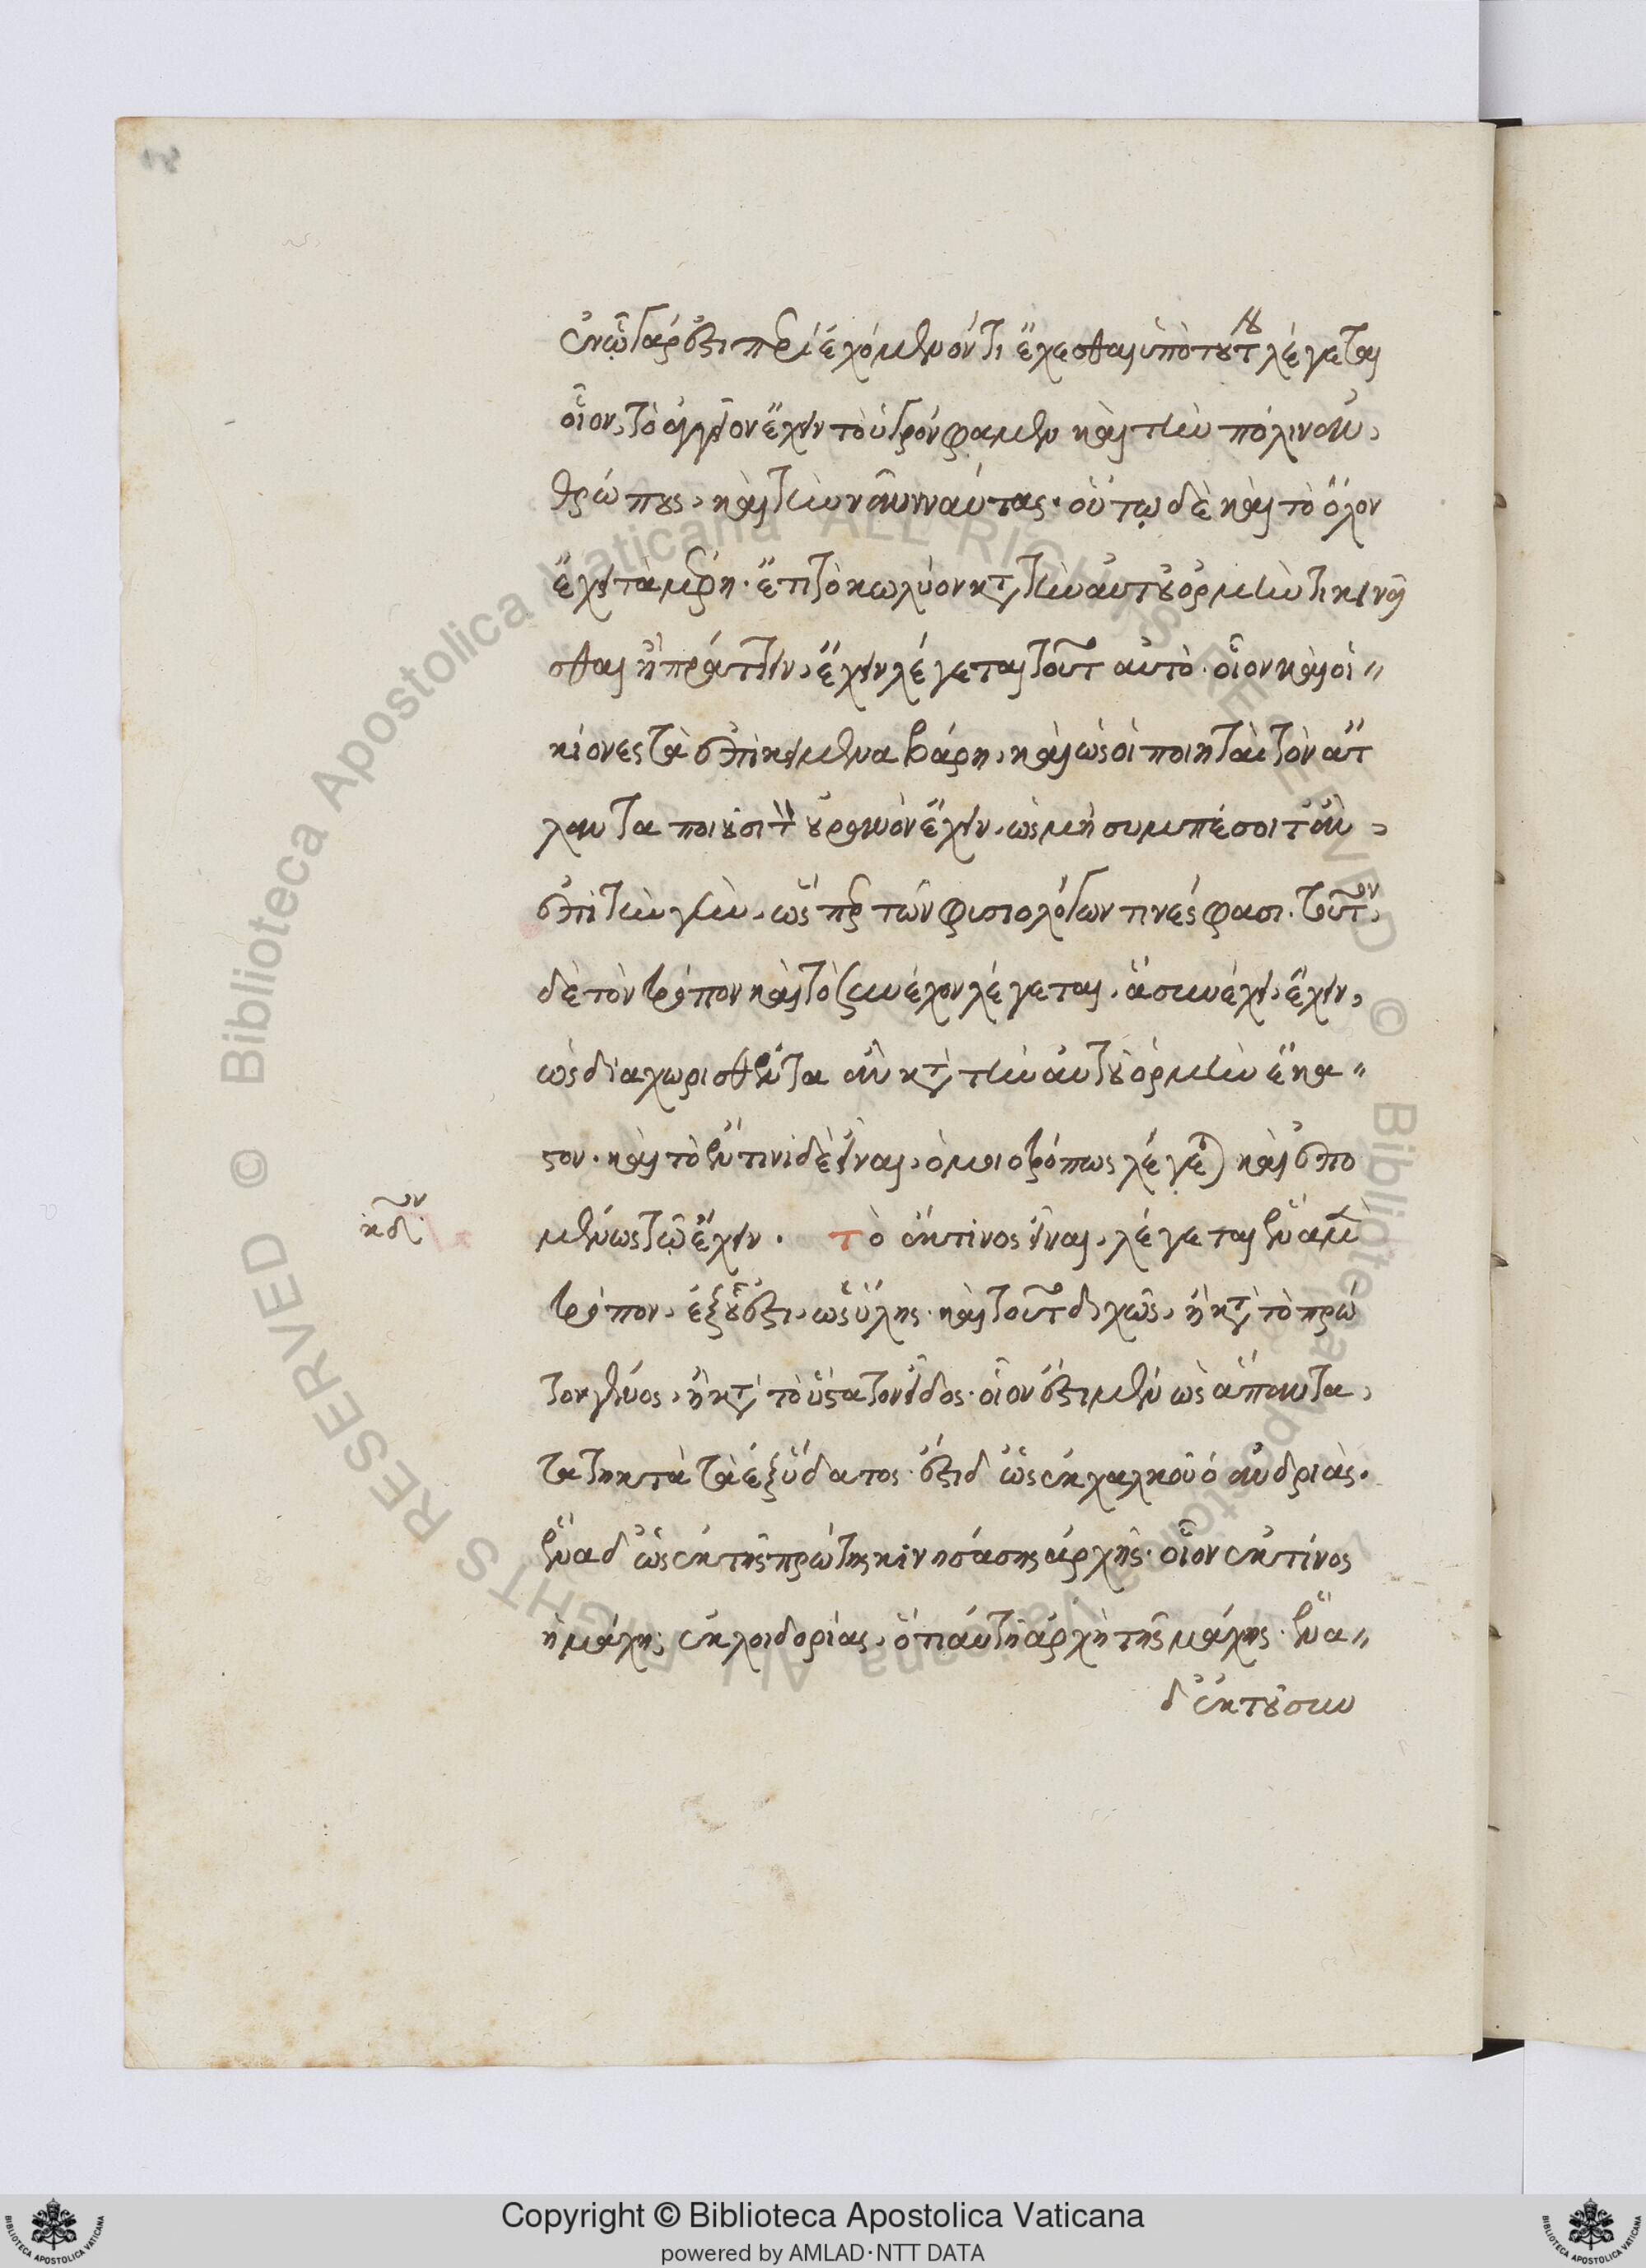 ἐν ᾧ γάρ ἐστι περιέχοντι ἔχεσθαι ὑπὸ τούτου λέγεται
οἷον, τὸ ἀγγεῖον ἔχειν τὸ ὑγρόν φαμεν καὶ τὴν πόλιν ἀν,
θρώπους, καὶ τὴν ναῦν ναύτας· οὕτω δὲ καὶ τὸ ὅλον
ἔχει τὰ μέρη. ἔτι τὸ κωλύον κατὰ τὴν αὑτοῦ ὁρμήν τι κινεῖ
σθαι ἢ πράττειν, ἔχειν λέγεται τοῦτ αὐτὸ. οἷον καὶ οἱ
κίονες τὰ ἐπικείμενα βάρη, καὶ ὡς οἱ ποιηταὶ τὸν ἄτ
λαντα ποιοῦσι τὸν οὐρανὸν ἔχειν, ὡς μὴ συμπέσοιτ ἂν,
ἐπὶ τὴν γῆν, ὥσπερ τῶν φισιολόγων τινές φασι. τοῦτον,
δὲ τὸν τρόπον καὶ τὸ συνέχον λέγεται, ἃ συνέχει, ἔχειν,
ὡς διαχωρισθέντα ἂν κατὰ τὴν αὑτοῦ ὁρμὴν ἕκα
στον. καὶ τὸ ἔν τινι δὲ εἶναι, ὁμοιοτρόπως λέγεται καὶ ἑπο
μένως τῷ ἔχειν. τὸ ἔκ τινος εἶναι, λέγεται ἕνα μὲν
τρόπον, ἐξ οὗ ἐστι, ὡς ὕλης. καὶ τοῦτο διχῶς, ἢ κατὰ τὸ πρῶ
τον γένος, ἢ κατὰ τὸ ὕστατον εἶδος. οἷον ἔστι μὲν ὡς ἅπαντα,
τὰ τηκτὰ τὰ ἐξ ὕδατος. ἔστι δ ὡς ἐκ χαλκοῦ ὁ ἀνδριάς.
ἕνα δ ὡς ἐκ τῆς πρώτης κινησάσης ἀρχῆς. οἷον ἐκ τίνος
ἡ μάχη; ἐκ λοιδορίας, ὅτι αὕτη ἀρχὴ τῆς μάχης. ἕνα
δ ἐκ τοῦ συν